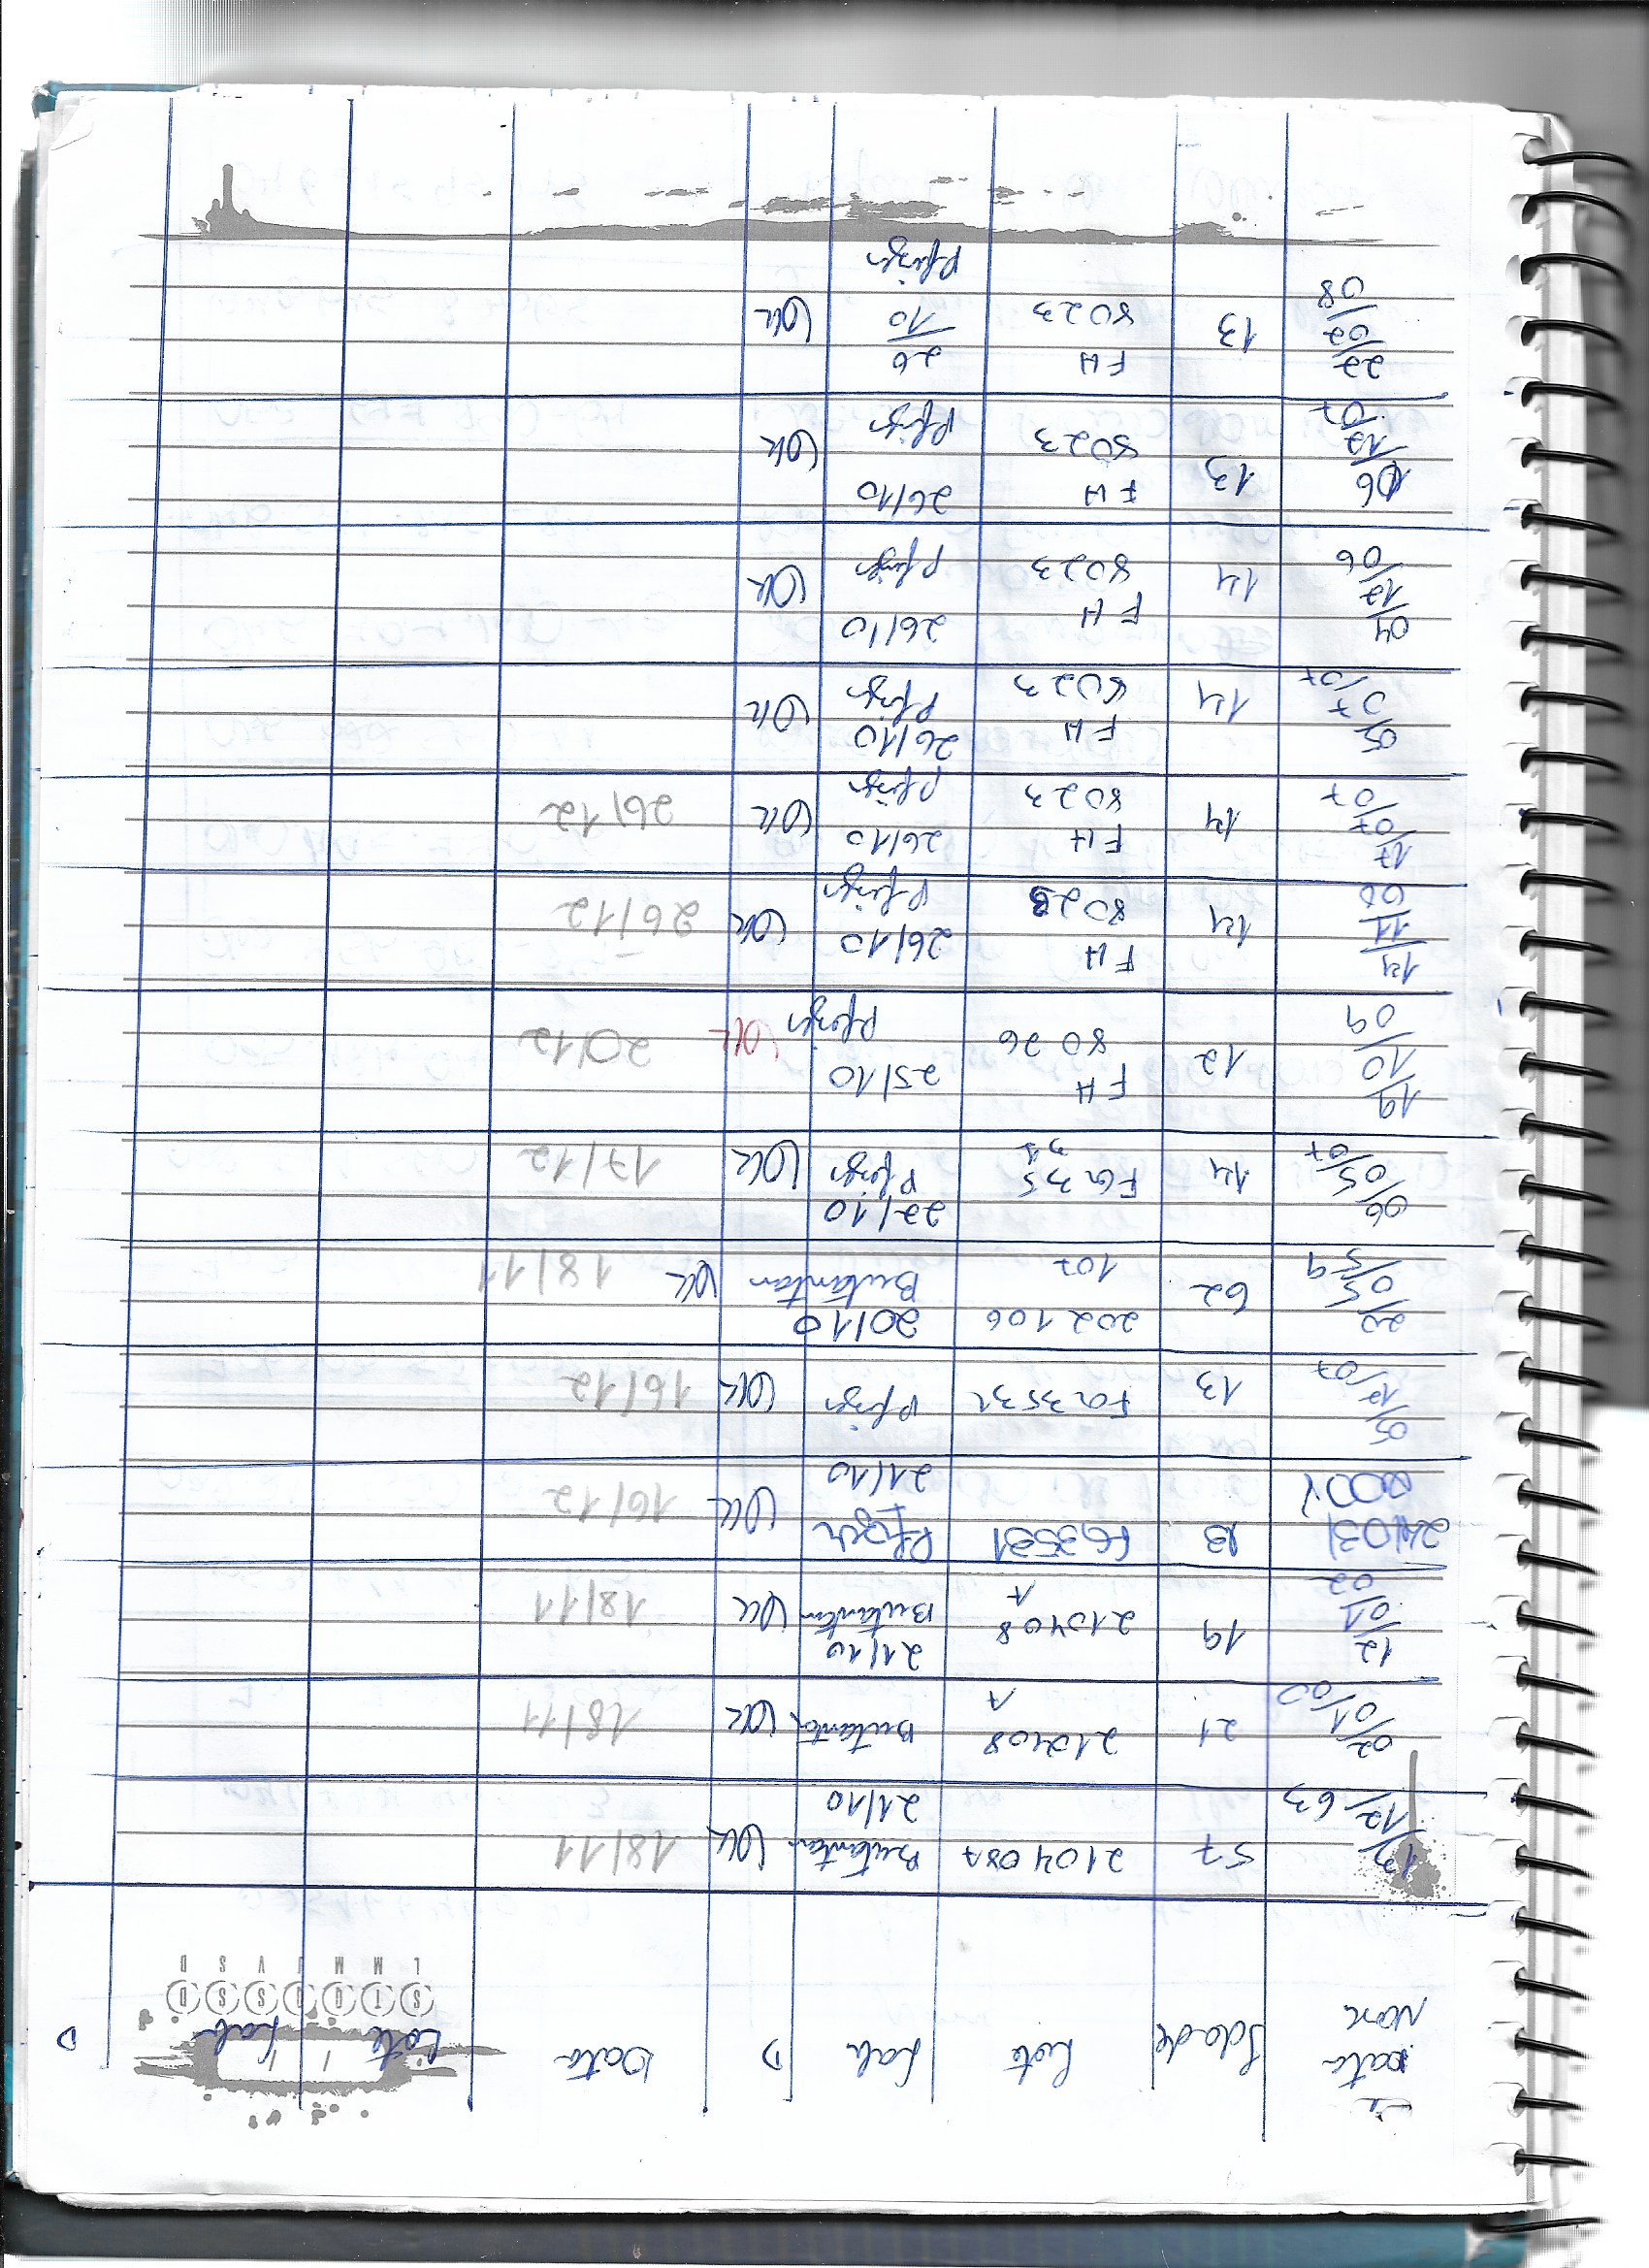 Data
Nasc
Idade
Lote
Lab
D
Data
Lote
Lab
D
S T Q Q S S D
L M M J V S D
17/
12/63
57
210408A
Butantan
21/10
Ok
18/11
02/
01/00
21
210408
A
Butantan
Ok
18/11
12/
01/
02
19
210408
A
21/10
Butantan
Ok
18/11
24/03/
2007
13
FG3531
Pfizer
21/10
Ok
16/12
05/
12/
07
13
FG3532
Pfizer
Ok
16/12
22/
05/
59
62
202106
107
20/10
Butantan
Ok
18/11
06/
05/
07
14
FG35
31
22/10
Pfizer
Ok
17/12
19/
10/
09
12
FH
8026
25/10
Pfizer
Ok
20/12
14/
11/
06
14
FH
8023
26/10
Pfizer
Ok
26/12
17/
07/
07
14
FH
8023
26/10
Pfizer
Ok
26/12
05/
07
/07
14
FH
8023
26/10
Pfizer
Ok
04/
12/
06
14
FH
8023
26/10
Pfizer
Ok
06
12/
07
13
FH
8023
26/10
Pfizer
Ok
22/
02/
08
13
FH
8023
26/
10
Pfizer
Ok